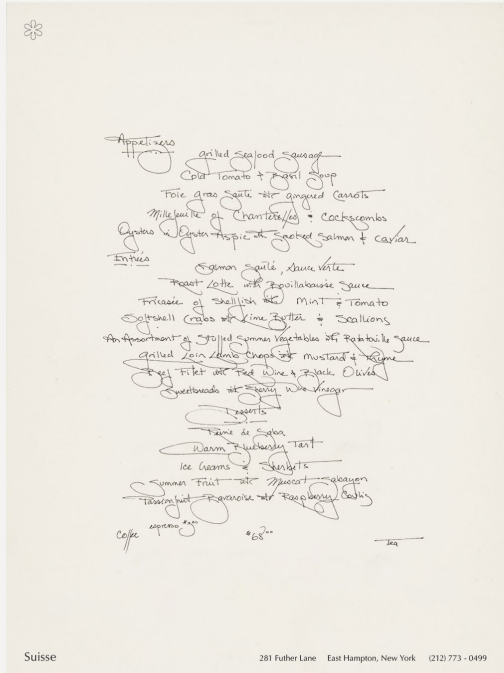 Appetizers
Grilled Seafood Sausage
Cold Tomato & Basil Soup
Foie Gras Sauté with gingered Carrots
Millefeuille of Chanterelles & Cockscombs
Oysters in Oyster Aspic with Smoked Salmon & Caviar
Entrées
Salmon Sauté, Sauce Verte
Roast Lotte with Bouillabaisse Sauce
Fricasée of Shellfish with Mint & Tomato
Softshell Crabs with Lime Butter & Scallions
An Assortment of Stuffed Summer Vegetables with Ratatouille Sauce
Grilled Loin Lamb Chops with Mustard & Thyme
Beef Filet with Red Wine & Black Olives
Sweetbreads with Sherry Wine Vinegar
Desserts
Reine de Saba
Warm Blueberry Tart
Ice Creams & Sherbets
Summer Fruit with Muscat Sabayon
Passionfruit Bavaroise with Raspberry Coulis
Coffee espresso $68.00 tea
Suisse 281 Futher Lane East Hampton, New York (212) 773 - 0499